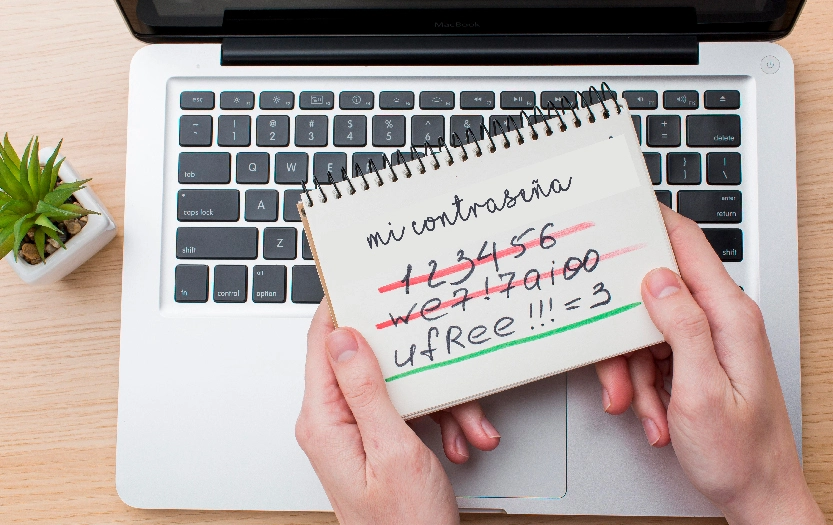 MacBook
esc
~ ! 1 @ 2 # 3 $ 4 % 5 ^ 6 & + = delete
tab Q W E } ] | \
caps lock A enter return
shift Z shift
fn control alt option
mi contraseña
123456
we7!7aioo
ufRee!!!=3